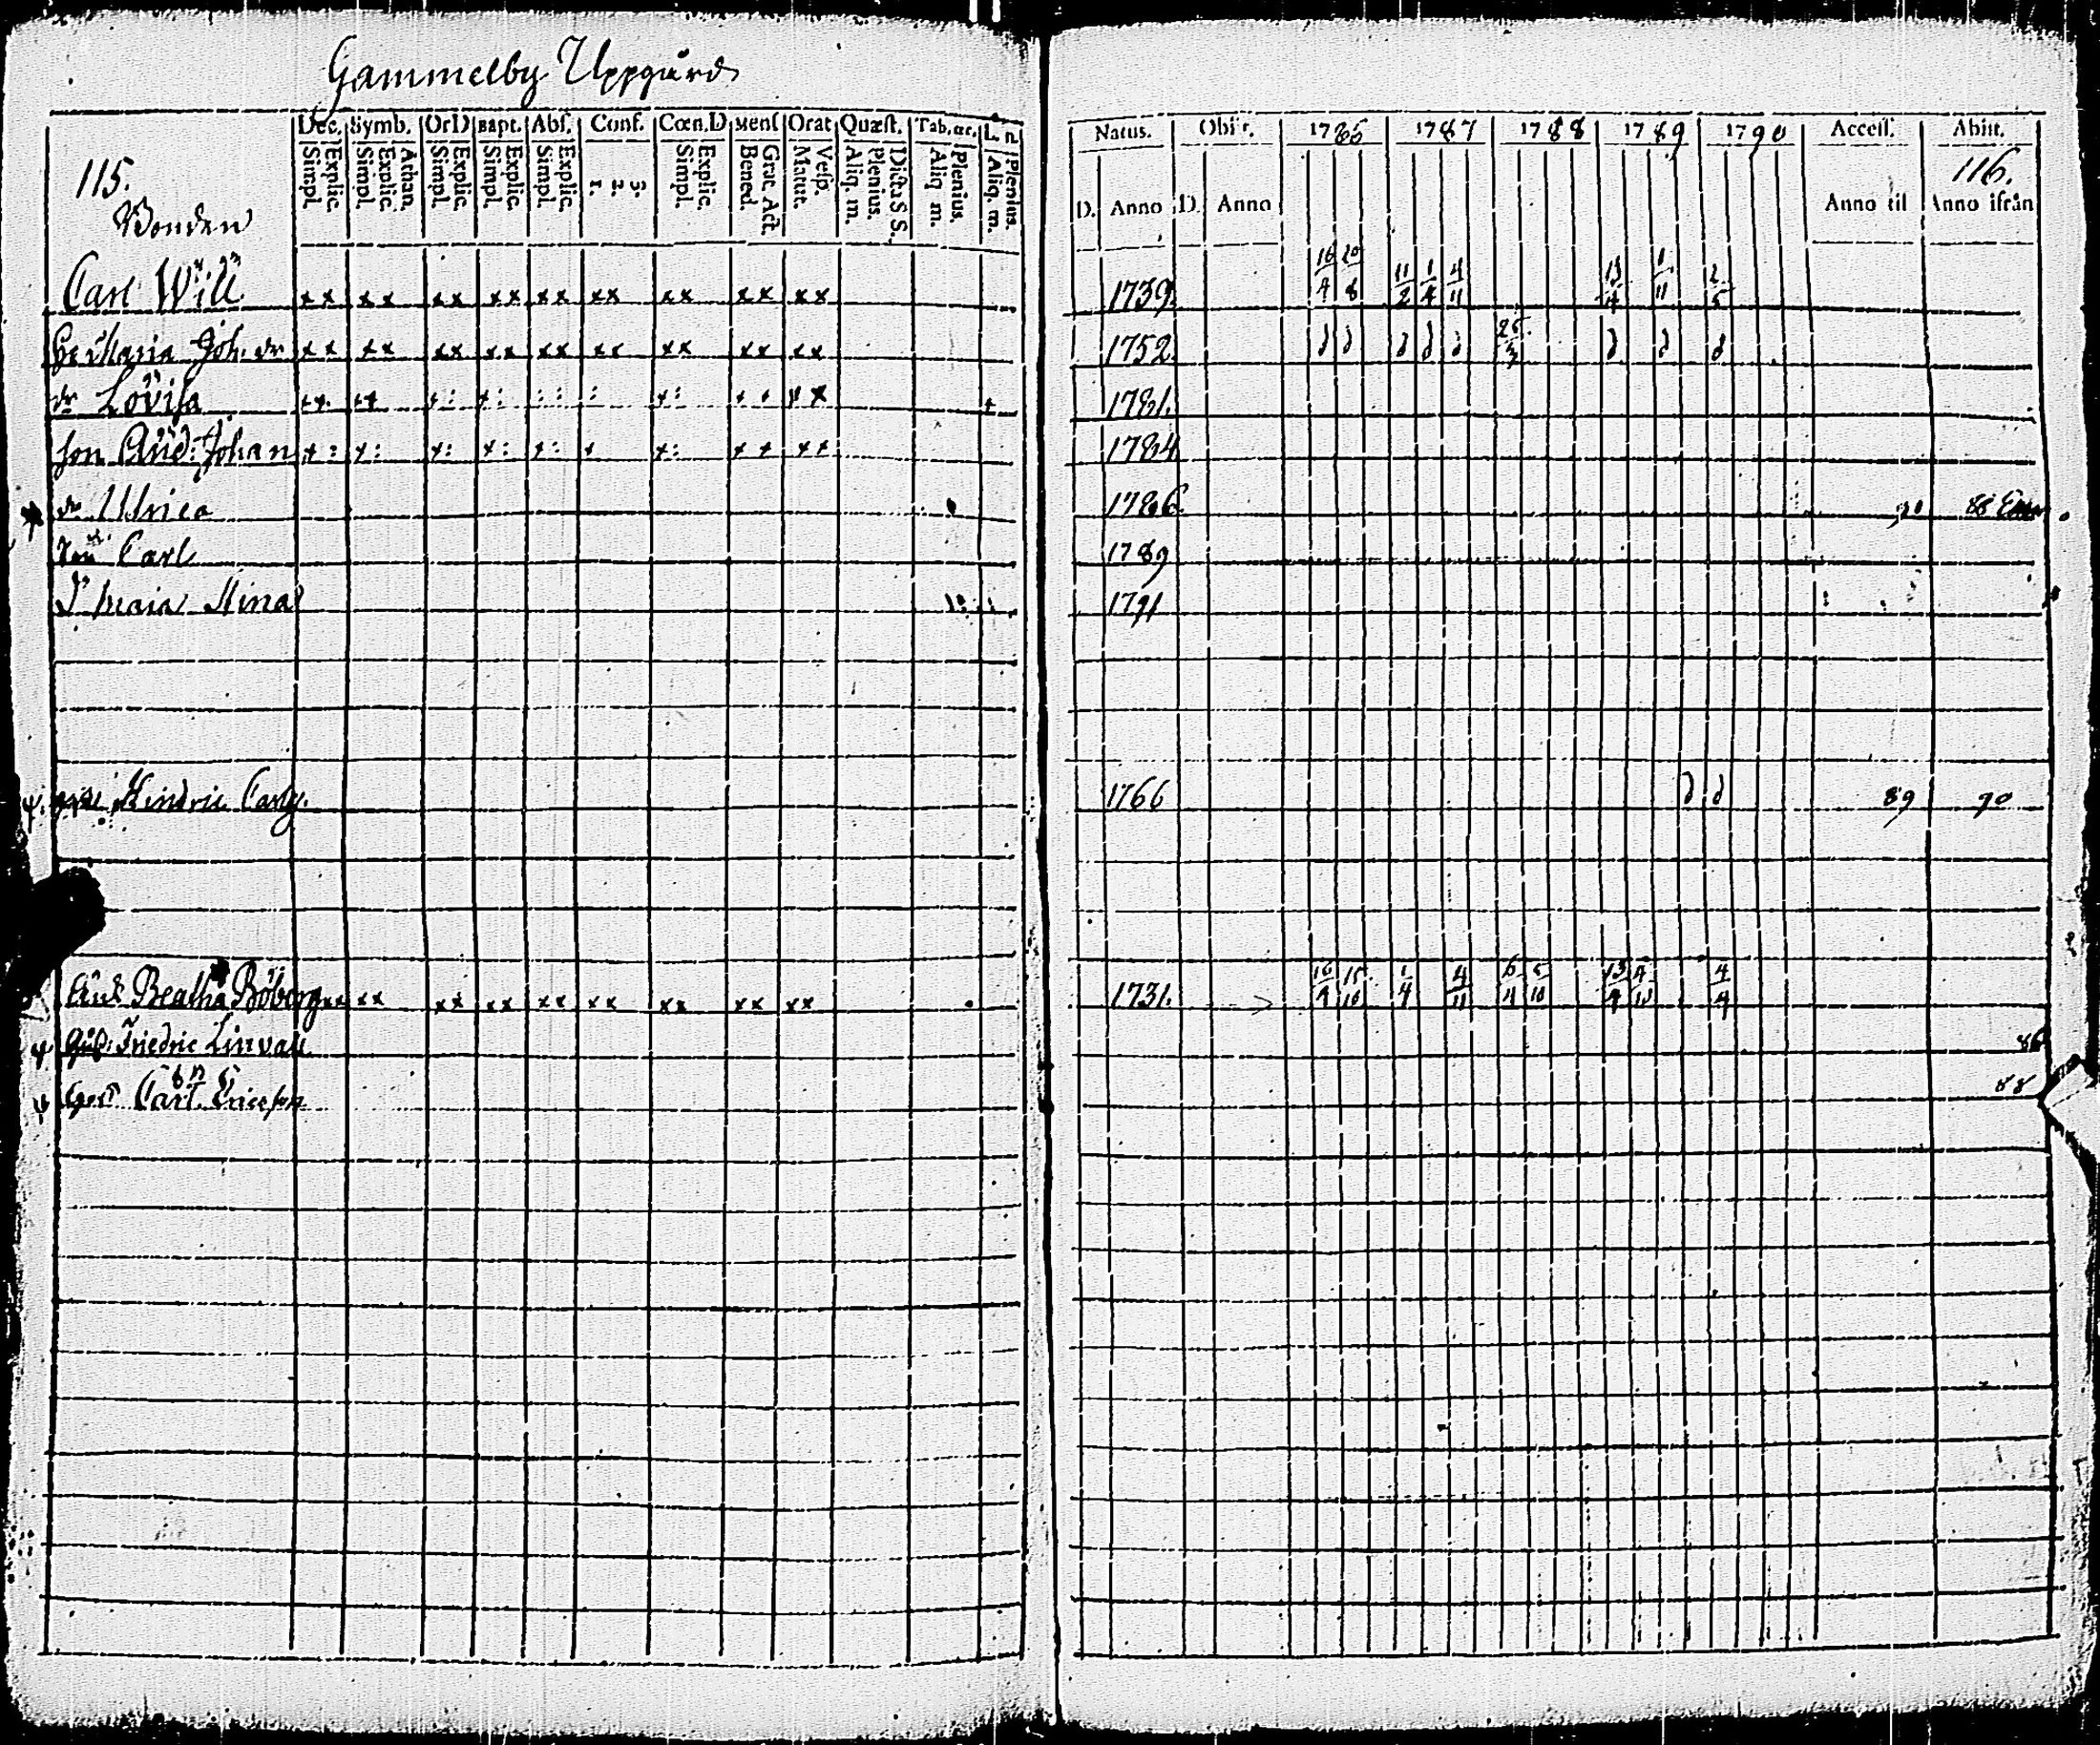 Gammelby Uppgård
Dec. Symb. OrD Bapt. Abſ. Conf. Cœn.D Menſ Orat Quæſt. Tab. œc. L. n.
Explic. Simpl. Athan. Explic. Simpl. Explic. Simpl. Explic. Simpl. Explic. Simpl. 3. 2. 1. Explic. Simpl. Grat. Act. Bened. Veſp. Matut. Dicta S S. Plenius. Aliq. m. Plenius. Aliq m. Plenius. Aliq. m.
Natus. Obiit. 1786 1787 1788 1789 1790 Acceſſ. Abiit.
115.
116.
D. Anno D. Anno Anno til Anno ifrån
Bonden
Carl Will xx xx xx xx xx xx xx xx xx 1739. 16/4 20/8 11/2 1/4 4/11 13/4 1/11 2/5
Maria Joh. dr xx xx xx xx xx xx xx xx xx 1752 25/3
dr Lovisa 1781.
son And: Johan 1784
dr Ulrica 1786 90 88
Carl 1789
Maia Stina 1791
Hindric 1766 89 90
Enk. Beatha Böberg xx xx xx xx xx xx xx xx xx 1731. 16/4 15/10 1/4 4/11 6/4 5/10 13/4 4/10 4/4
Friedric Linvall 86
Carl Ericsson 88